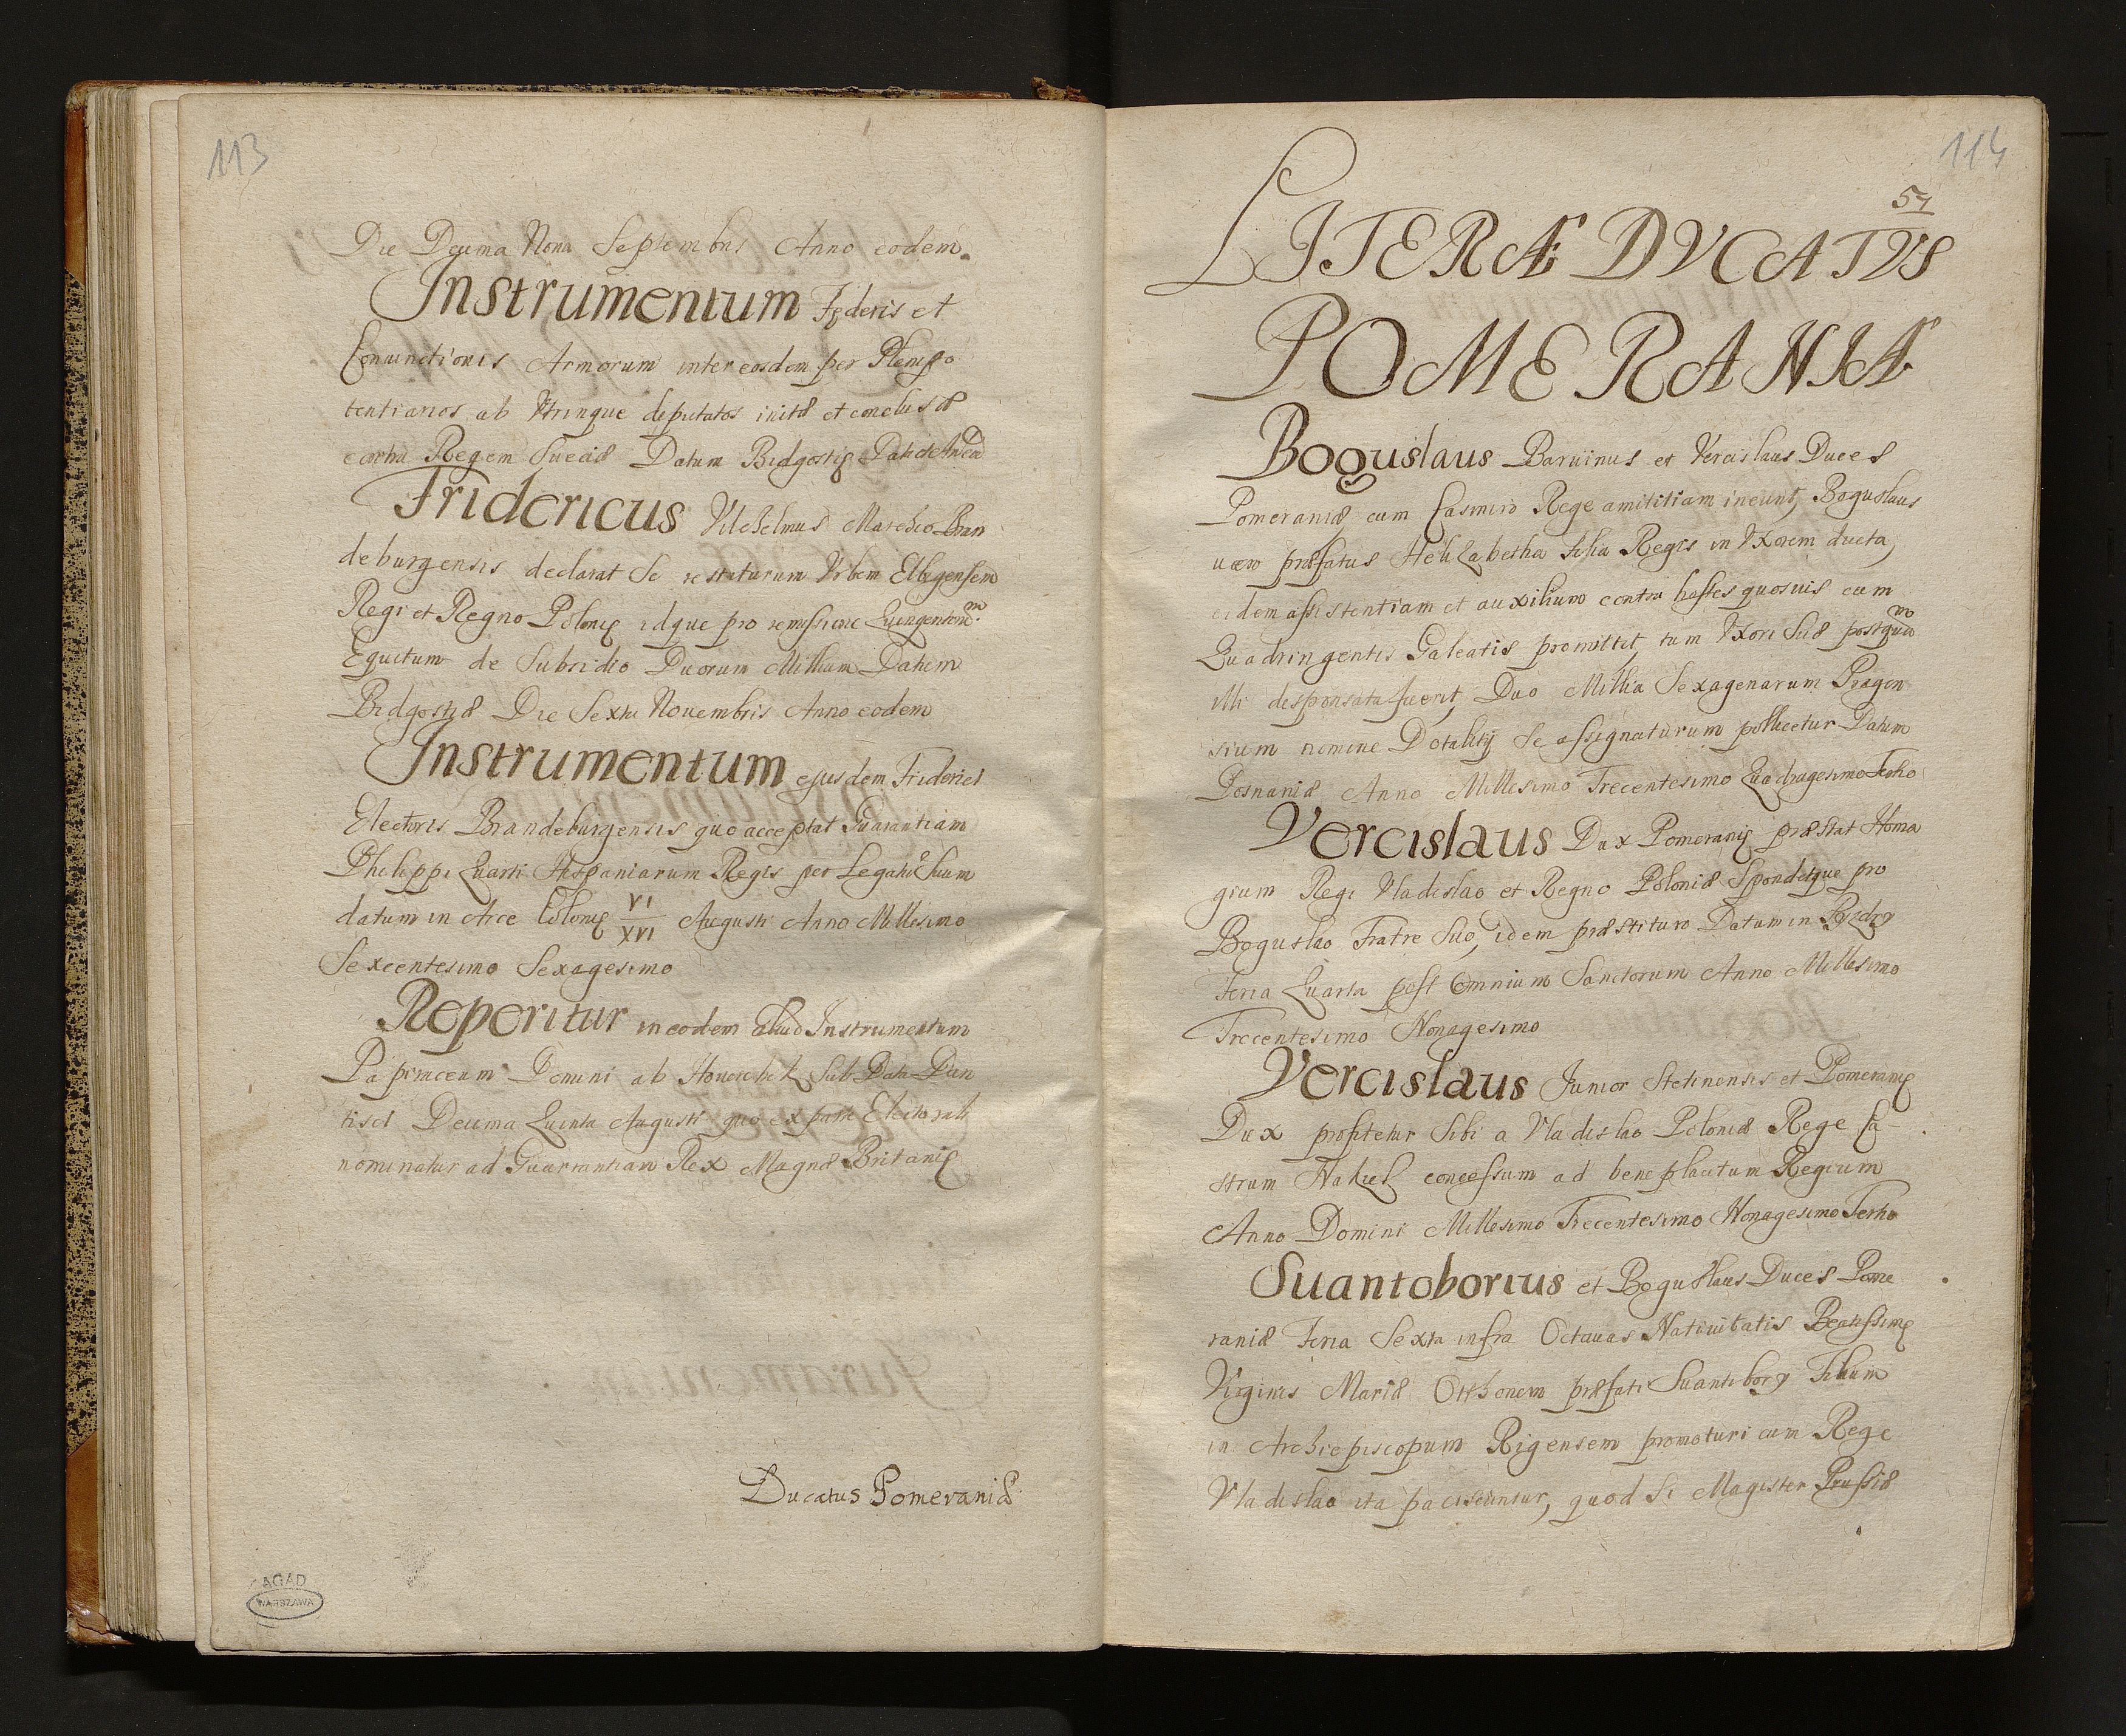 113
Die Decima Nona Septembris Anno eodem.
Instrumentum Fęderis et
Coniunctionis Armorum inter eosdem per Plenipo
tentiarios ab Vtrinque deputatos initæ et conclusæ
contra Regem Sueciæ Datum Bidgostię Datæ
Fridericus Vilchelmus Marchio Bran
deburgensis declarat Se restiturum Vrbem Elbigensem
Regi et Regno Polonię idque pro remissione Quingentom̃
Equitum de Subsidio Duorum Millium Datum
Bidgostiæ Die Sexta Nouembris Anno eodem
Instrumentum ejusdem Friderici
Electoris Brandeburgensis quo acceptat Guarantiam
Philippi Quarti Hispaniarum Regis per Legatũ Suum
datum in Arce Colonię VI/XVI Augusti Anno Millesimo
Sexcentesimo Sexagesimo
Reperitur in eodem aliud Instrumentum
Papiraceum Domini ab Houerbek Sub Data Dan
tisci Decima Quinta Augusti quo ex parte Electorali
nominatur ad Guarrantian Rex Magnæ Britanię
Ducatus Pomeraniæ
AGAD
WARSZAWA
114
57
LITERÆ DVCATVS
POMERANIÆ
Boguslaus Barninus et Vercislaus Duces
Pomeraniæ cum Casimiro Rege amititiam ineunt, Boguslaus
uero præfatus Helizabetha Filia Regis in Vxorem ducta,
eidem assistentiam et auxilium contra hostes quosuis cum
Quadringentis Galeatis promittit, tum Vxori Suæ postquam
illi desponsata fuerit, Duo Millia Sexagenarum Pragen
sium nomine Dotalitij Se assignaturum pollicetur Datum
Posnaniæ Anno Millesimo Trecentesimo Quadragesimo Tertio
Vercislaus Dux Pomeranię præstat Homa
gium Regi Vladislao et Regno Poloniæ Spondetque pro
Boguslao Fratre Suo, idem præstituro Datum in Pyzdry
Feria Quarta post Omnium Sanctorum Anno Millesimo
Trecentesimo Nonagesimo
Vercislaus Junior Stetinensis et Pomeranię
Dux profitetur Sibi a Vladislao Poloniæ Rege Ca-
strum Nakiel concessum ad beneplacitum Regium
Anno Domini Millesimo Trecentesimo Nonagesimo Tertio
Suantoborius et Boguslaus Duces Pome
raniæ Feria Sexta infra Octauas Natiuitatis Beatissimę
Virginis Mariæ Otthonem præfati Suantibory Filium
in Archiepiscopum Rigensem promoturi cum Rege
Vladislao ita paciscuntur, quod Si Magister Prussiæ